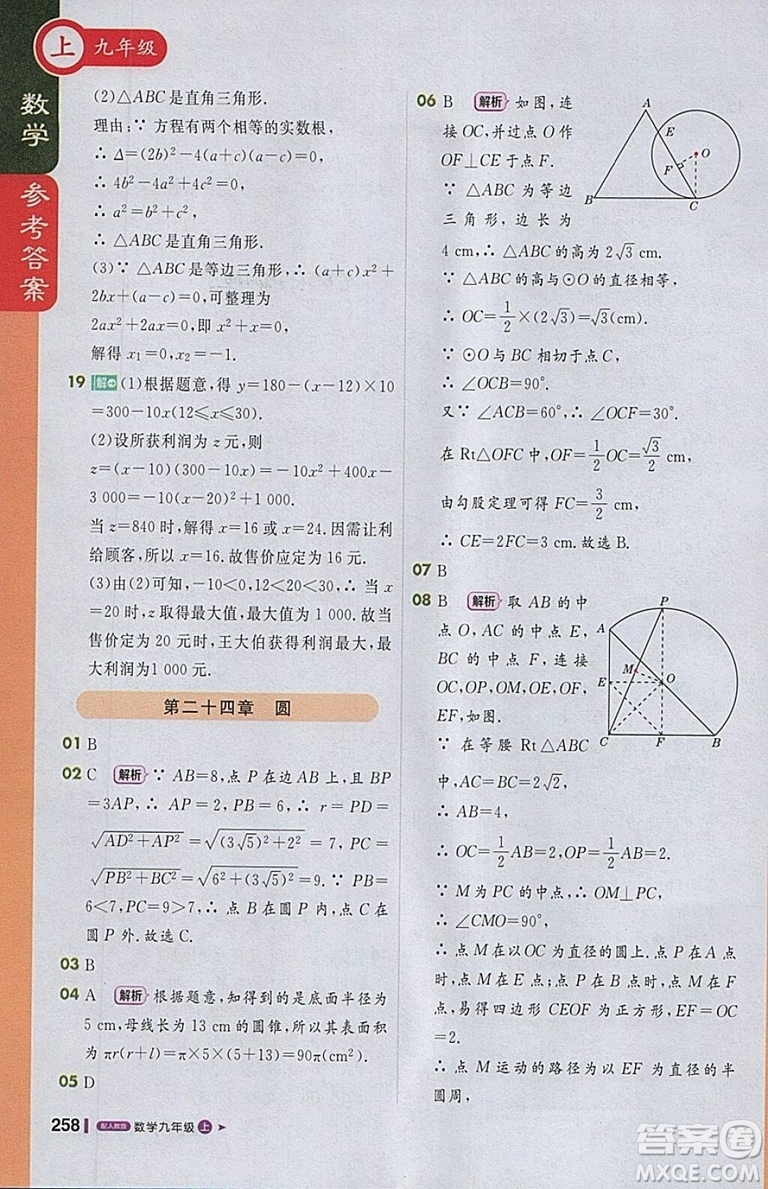 上 九年级
数学
参考答案
(2)△ABC是直角三角形.
理由:∵ 方程有两个相等的实数根,
∴ Δ=(2b)²-4(a+c)(a-c)=0,
∴ 4b²-4a²+4c²=0,
∴ a²=b²+c²,
∴ △ABC是直角三角形.
(3)∵ △ABC是等边三角形,∴ (a+c)x²+
2bx+(a-c)=0,可整理为
2ax²+2ax=0,即 x²+x=0,
解得 x₁=0,x₂=-1.
19 解 (1)根据题意,得 y=180-(x-12)×10
=300-10x(12≤x≤30).
(2)设所获利润为 z 元,则
z=(x-10)(300-10x)=-10x²+400x
-3 000=-10(x-20)²+1 000.
当 z=840 时,解得 x=16或 x=24.因需让利
给顾客,所以 x=16.故售价应定为 16 元.
(3)由(2)可知,-10<0,12<20<30,∴ 当 x
=20 时,z 取得最大值,最大值为 1 000.故当
售价定为 20 元时,王大伯获得利润最大,最
大利润为1 000 元.
第二十四章 圆
01 B
02 C 解析 ∵ AB=8,点 P 在边 AB 上,且 BP
=3AP,∴ AP=2,PB=6,∴ r=PD=
√(AD²+AP²)=√((3√5)²+2²)=7,PC=
√(PB²+BC²)=√(6²+(3√5)²)=9.∵ PB=
6<7,PC=9>7,∴ 点 B 在圆 P 内,点 C 在
圆 P 外.故选C.
03 B
04 A 解析 根据题意,知得到的是底面半径为
5 cm,母线长为 13 cm 的圆锥,所以其表面积
为 πr(r+l)=π×5×(5+13)=90π(cm²).
05 D
06 B 解析 如图,连
接 OC,并过点 O 作
OF⊥CE于点 F.
∵ △ABC 为等边
三角形,边长为
4 cm,∴ △ABC 的高为 2√3 cm.
∵ △ABC的高与⊙O的直径相等,
∴ OC=1/2×(2√3)=√3(cm).
∵ ⊙O与BC相切于点C,
∴ ∠OCB=90°.
又∵ ∠ACB=60°,∴ ∠OCF=30°.
在 Rt△OFC 中,OF=1/2OC=√3/2 cm,
由勾股定理可得 FC=3/2 cm,
∴ CE=2FC=3 cm.故选 B.
A
E
O
F
B
C
07 B
08 B 解析 取 AB 的中
点 O,AC 的中点 E,
BC 的中点 F,连接
OC,OP,OM,OE,OF,
EF,如图.
∵ 在等腰 Rt△ABC
中,AC=BC=2√2,
∴ AB=4,
∴ OC=1/2AB=2,OP=1/2AB=2.
∵ M 为 PC 的中点,∴ OM⊥PC,
∴ ∠CMO=90°.
∴ 点 M在以OC为直径的圆上.点 P 在点 A
时,点 M在点 E;点 P 在点 B 时,点 M在点
F,易得四边形 CEOF 为正方形,EF=OC
=2.
∴ 点 M 运动的路径为以 EF 为直径的半
圆周,
P
A
M
E
O
C
F
B
258 配人教版 数学九年级 上
答案圈
MXQE.COM